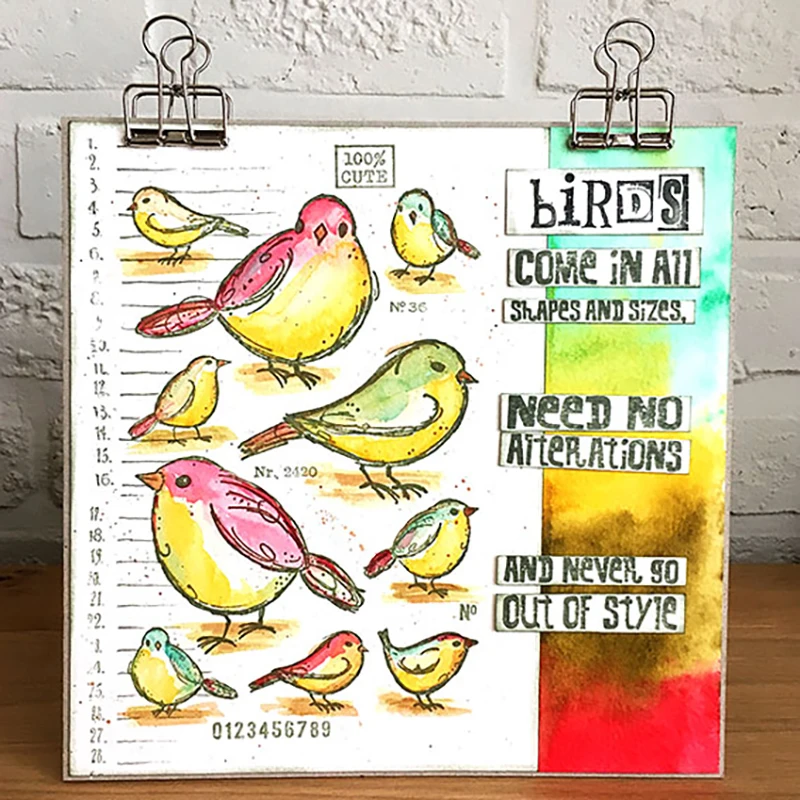 100%
CUTE
biRDS
COME iN All
SHAPES AND SiZES,
NEED NO
AlTERATiONS
AND NEVER gO
OUT OF STylE
Nº 36
Nr. 2420
Nº
0123456789
1.
2.
3.
4.
5.
6.
8.
10.
11.
12.
13.
14.
15.
16.
18.
19.
21.
22.
27.
28.